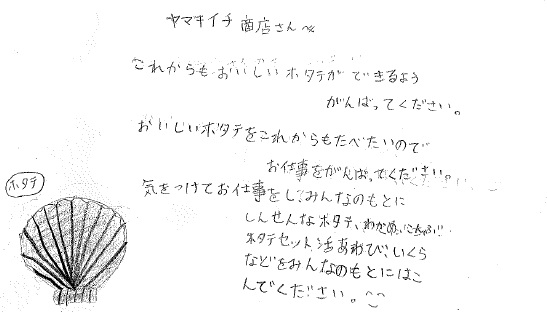 ヤマキイチ商店さんへ
これからもおいしいホタテができるよう
がんばってください。
おいしいホタテをこれからもたべたいので
お仕事をがんばってください。
気をつけてお仕事をしてみんなのもとに
しんせんなホタテ、わかめ、
ホタテセット、活あわび、いくら
などをみんなのもとにはこ
んでください。
ホタテ